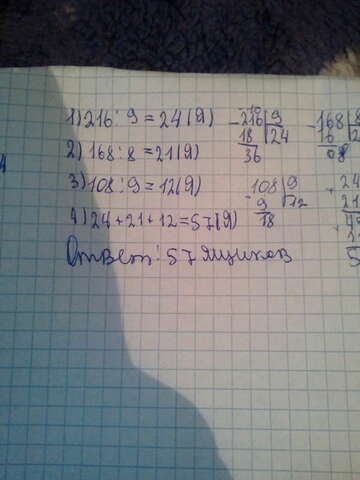 1) 216 : 9 = 24 (Я)
2) 168 : 8 = 21 (Я)
3) 108 : 9 = 12 (Я)
4) 24 + 21 + 12 = 57 (Я)
Ответ: 57 ящиков
- 216 | 9
18 | 24
36
- 168 | 8
- 108 | 9
9 | 12
18